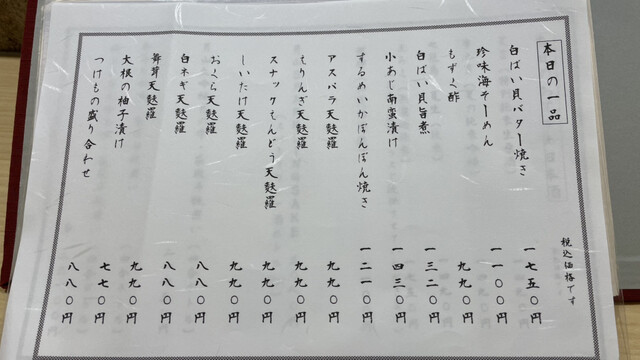 本日の一品
税込価格です
白ばい貝バター焼き 一七五〇円
珍味海そーめん 一一〇〇円
もずく酢 九九〇円
白ばい貝旨煮 一三二〇円
小あじ南蛮漬け 一四三〇円
するめいかぽんぽん焼き 一二一〇円
アスパラ天麩羅 九九〇円
えりんぎ天麩羅 九九〇円
スナックえんどう天麩羅 九九〇円
しいたけ天麩羅 九九〇円
おくら天麩羅 八八〇円
白ネギ天麩羅 八八〇円
舞茸天麩羅 九九〇円
大根の柚子漬け 七七〇円
つけもの盛り合わせ 八八〇円